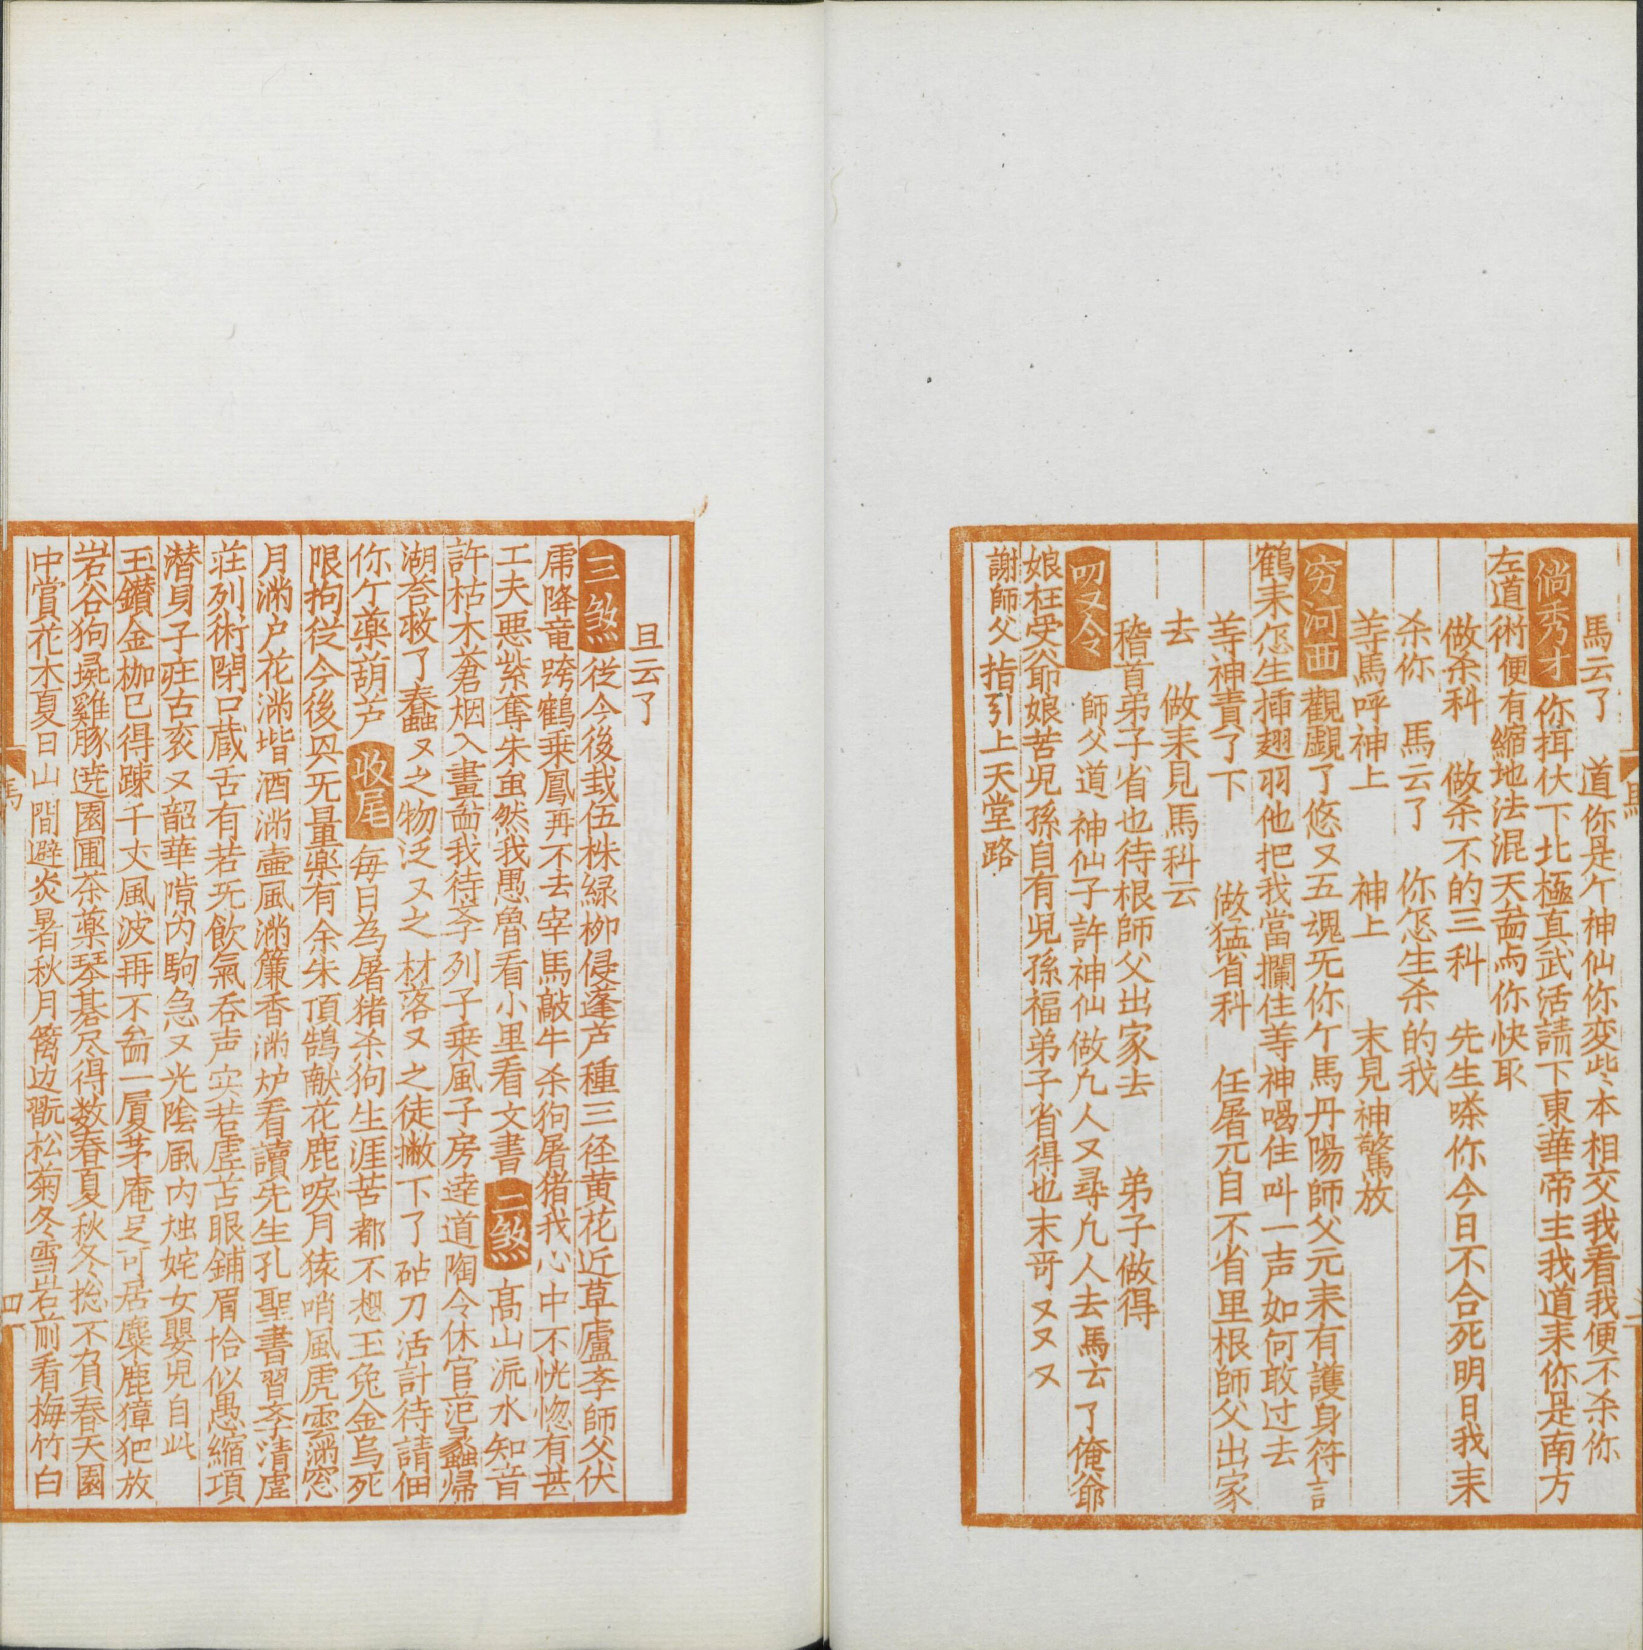 馬云了　道你是个神仙你变些本相交我看我便不杀你
倘秀才　你揖伏下北極真武活請下東華帝主我道耒你是南方
左道術便有縮地法混天啚与你快取
做杀科　做杀不的三科　先生嗏你今日不合死明日我耒
杀你　馬云了　你怎生杀的我
等馬呼神上　神上　末見神驚放
穷河西　觀覷了悠又五魂旡你个馬丹陽師父元耒有護身符言
鶴耒怎生插翅羽他把我當攔住等神喝住叫一声如何敢过去
等神責了下　做猛省科　任屠元自不省里根師父出家
去　做耒見馬科云
稽首弟子省也待根師父出家去　弟子做得
叨又令　師父道神仙子許神仙做凢人又尋凢人去馬云了俺爺
娘枉受爺娘苦児孫自有児孫福弟子省得也末哥又又又
謝師父指引上天堂路
旦云了
三煞　従今後栽伍株緑柳侵蓬芦種三径黄花近草廬孝師父伏
乕降竜跨鶴乗鳳再不去宰馬敲牛杀狗屠猪我心中不恍惚有甚
工夫悪紫奪朱虽然我愚魯看小里看文書　二煞　高山流水知音
許枯木蒼烟入畫啚我待孝列子乗風子房逹道陶令休官范蠡帰
湖荅救了蠢又之物泛又之材落又之徒撇下了砧刀活計待請佃
你个薬葫芦　收尾　每日為屠猪杀狗生涯苦都不想王兔金烏死
限拘従今後兴旡量楽有余朱頂鵠献花鹿唳月猿哨風虎雲满窓
月满户花满堦酒满壷風满簾香满炉看讀先生孔聖書習孝清虚
荘列術閉口蔵舌有若旡飲氣吞声实若虚苫眼鋪眉恰似愚縮項
潜身子庄古亥又韶華隙内駒急又光隂風内烛姹女嬰児自此
玉鑚金枷已得踈千丈風波再不啚一厦茅庵足可居麋鹿獐犯放
岩谷狗彘雞豚遶園圃茶薬琴棊尽得数春夏秋冬捴不負春天園
中賞花木夏日山間避炎暑秋月篱边翫松菊冬雪岩前看梅竹白
馬
四